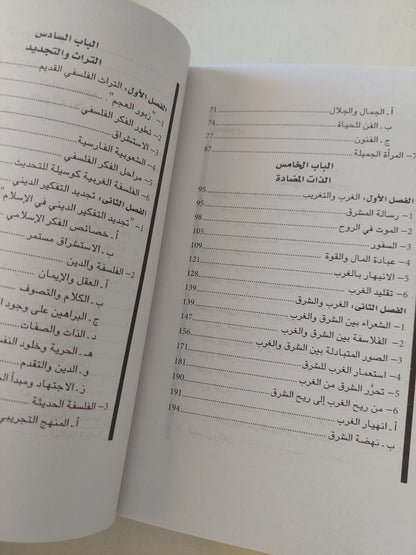 أ ـ الجمال والجلال 71
ب ـ الفن للحياة 74
ج ـ الفنون 77
7– المرأة الجميلة 87
الباب الخامس
الذات المضادة
الفصل الأول: الغرب والتغريب 95
1– رسالة المشرق 95
2– الموت في الروح 98
3– السفور 105
4– عبادة المال والقوة 109
5– الانبهار بالغرب 121
6– تقليد الغرب 128
الفصل الثاني: الغرب والشرق 139
1– الشعراء بين الشرق والغرب 139
2– الفلاسفة بين الشرق والغرب 147
3– الصور المتبادلة بين الشرق والغرب 156
4– استعمار الغرب للشرق 171
5– تحرُّر الشرق من الغرب 181
6– من ريح الغرب إلى ريح الشرق 190
أ ـ انهيار الغرب 191
ب ـ نهضة الشرق 194
الباب السادس
التراث والتجديد
الفصل الأول: التراث الفلسفي القديم
1– "زبور العجم"
2– تطور الفكر الفلسفي
3– الاستشراق
4– الشعوبية الفارسية
5– مراحل الفكر الفلسفي
6– الفلسفة الغربية كوسيلة للتحديث
الفصل الثاني: تجديد التفكير الديني
1– "تجديد التفكير الديني في الإسلام"
أ ـ خصائص الفكر الإسلامي
ب ـ الاستشراق مستمر
2– الفلسفة والدين
أ ـ العقل والإيمان
ب ـ الكلام والتصوف
ج ـ البراهين على وجود
د ـ الذات والصفات
هـ ـ الحرية وخلود
و ـ الدين والتقدم
ز ـ الاجتهاد ومبدأ
3– الفلسفة الحديثة
أ ـ المنهج التجريبي